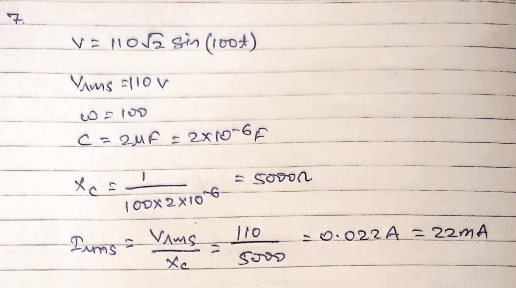 7.
V = 110√2 sin (100t)
Vrms = 110 V
ω = 100
C = 2μF = 2×10^-6 F
Xc = 1 / 100×2×10^-6 = 5000Ω
Irms = Vrms / Xc = 110 / 5000 = 0.022 A = 22mA